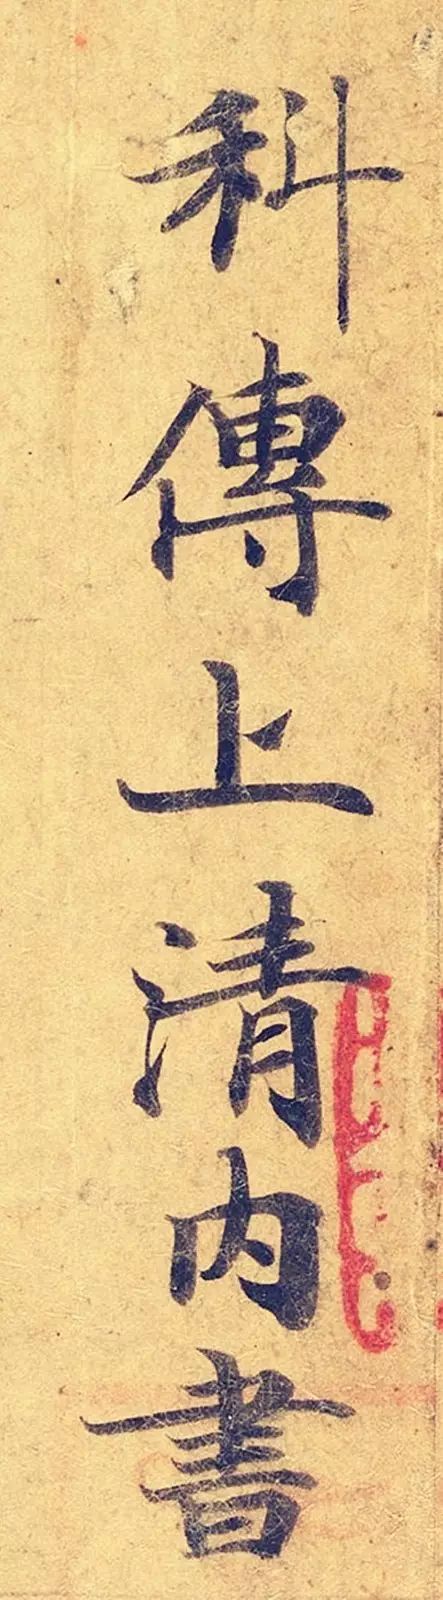 科傳上清内書